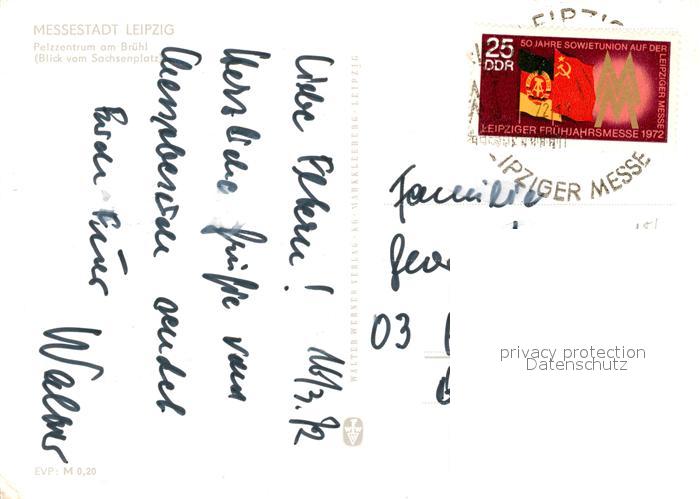 MESSESTADT LEIPZIG
Pelzzentrum am Brühl
(Blick vom Sachsenplatz)
Liebe Eltern! 16/3.72
Herzliche Grüße vom
sendet
Euer
EVP: M 0,20
WALTER WERNER VERLAG · KG · MARKKLEEBERG · LEIPZIG
25
DDR
50 JAHRE SOWJETUNION AUF DER
LEIPZIGER MESSE
LEIPZIGER FRÜHJAHRSMESSE 1972
LEIPZIGER MESSE
Familie
03
privacy protection
Datenschutz